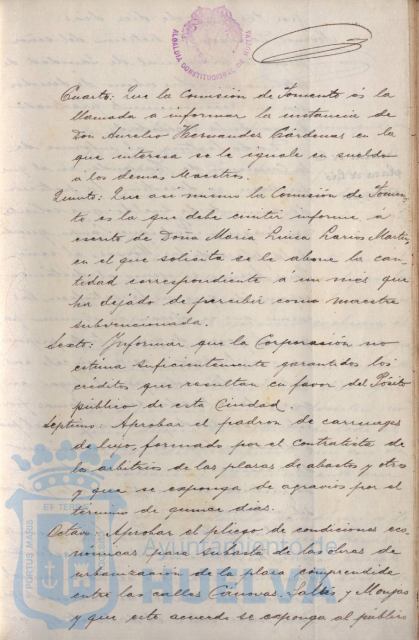 ALCALDIA CONSTITUCIONAL DE HUELVA
Cuarto: Que la Comisión de Fomento es la
llamada a informar la instancia de
Don Aurelio Hernandez Cárdenas en la
que interesa se le iguale en sueldo
á los demás Maestros.
Quinto: Que asi mismo la Comisión de Fomen-
to es la que debe emitir informe á
escrito de Doña Maria Luisa Larios Martin
en el que solicita se le abone la can-
tidad correspondiente á un mes que
ha dejado de percibir como maestra
subvencionada.
Sexto: Informar que la Corporación no
estima suficientemente garantidos los
créditos que resultan en favor del Pósito
público de esta Ciudad.
Septimo: Aprobar el padron de carruages
de lujo, formado por el contratista de
los arbitrios de las plazas de abastos y otros
y que se exponga de agravios por el
termino de quince dias.
Octavo: Aprobar el pliego de condiciones eco-
nómicas para subasta de las obras de
urbanización de la plaza comprendida
entre las calles Cánovas, Saltés y Monjas
y que este acuerdo se exponga al público
PORTUS MARIS ET TERRAE
Ayuntamiento de
HUELVA